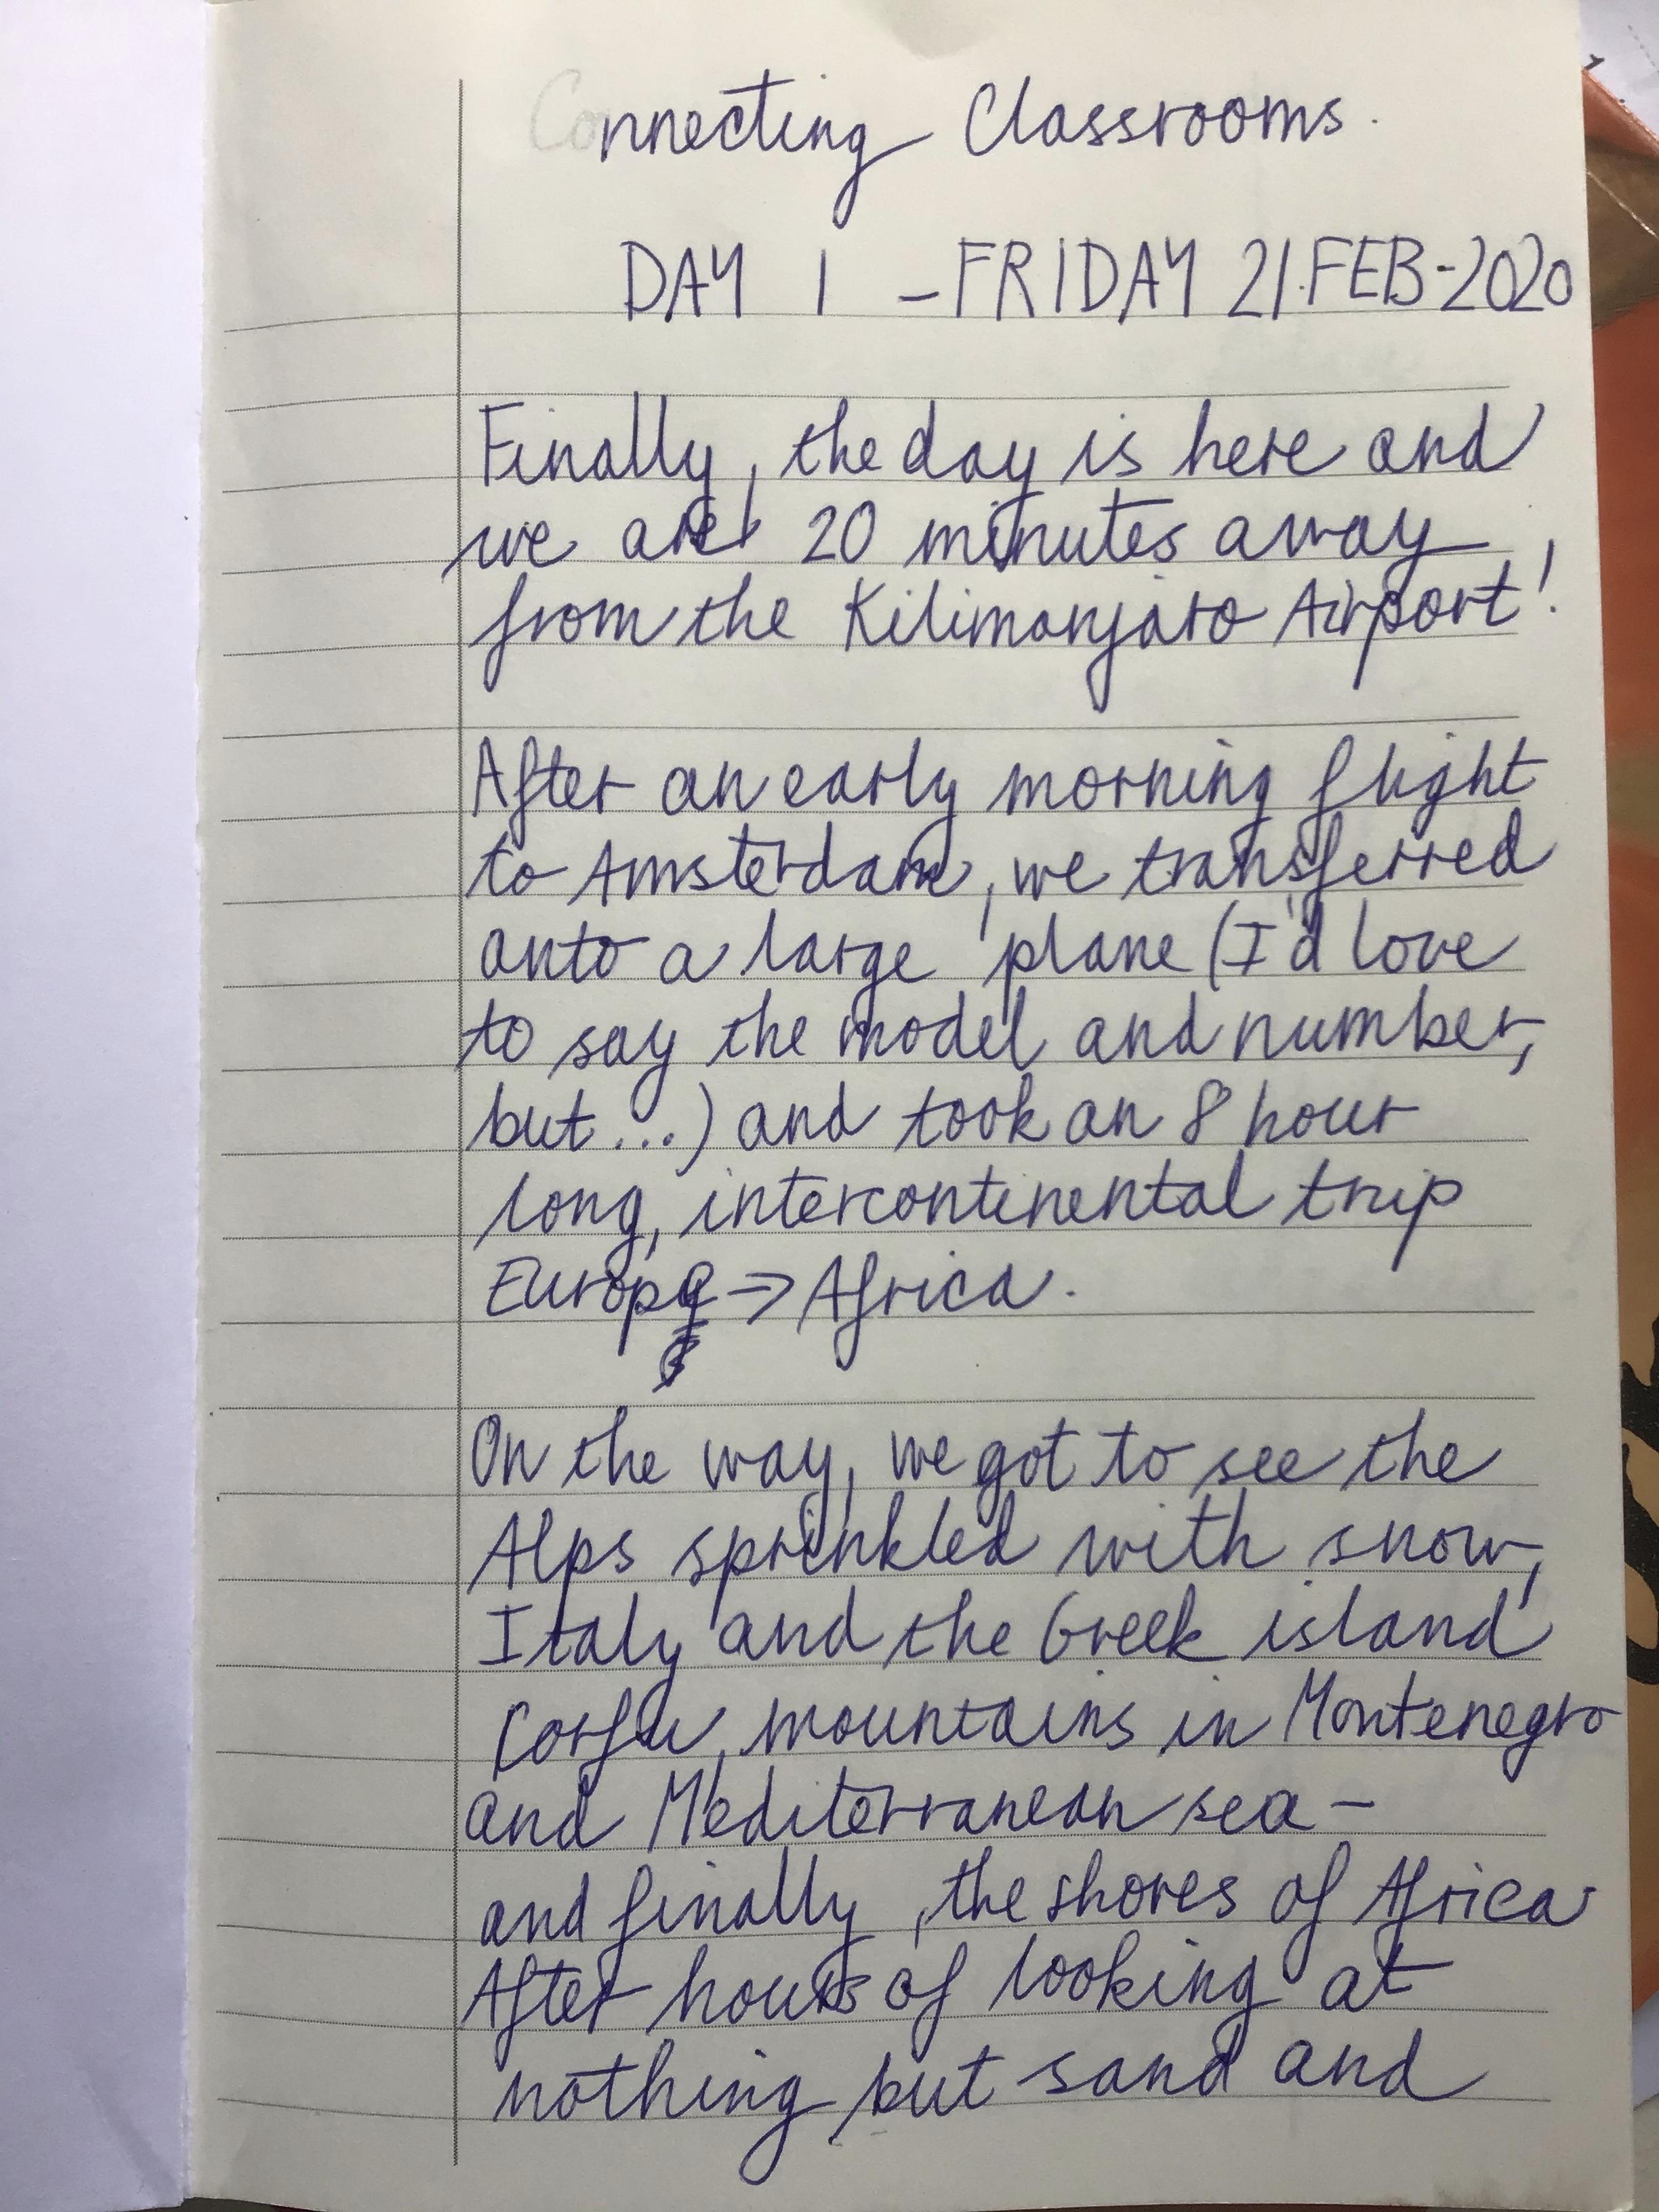 Connecting Classrooms.
DAY 1 – FRIDAY 21.FEB-2020
Finally, the day is here and
we are 20 minutes away
from the Kilimanjaro Airport!
After an early morning flight
to Amsterdam, we transferred
onto a large plane (I'd love
to say the model and number,
but...) and took an 8 hour
long, intercontinental trip
Europe → Africa.
On the way, we got to see the
Alps sprinkled with snow,
Italy and the Greek island
Corfu, mountains in Montenegro
and Mediterranean sea –
and finally, the shores of Africa.
After hours of looking at
nothing but sand and